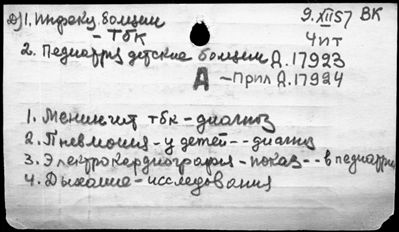 Д) 1. Инфекц. болезни 9. XII 57 ВК
- ТБК ЧИТ
2. Педиатрия детские болезни Д. 17923
А - Прил Д. 17924
1. Менингит тбк - диагноз
2. Пневмония - у детей - - диагноз
3. Электрокардиография - показ - - в педиатрии
4. Дыхание - исследования